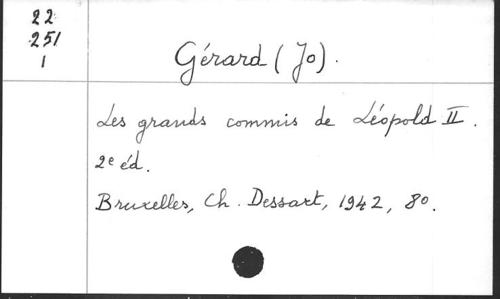 22
251
1
Gérard (Jo).
Les grands commis de Léopold II.
2e éd.
Bruxelles, Ch. Dessart, 1942, 8o.